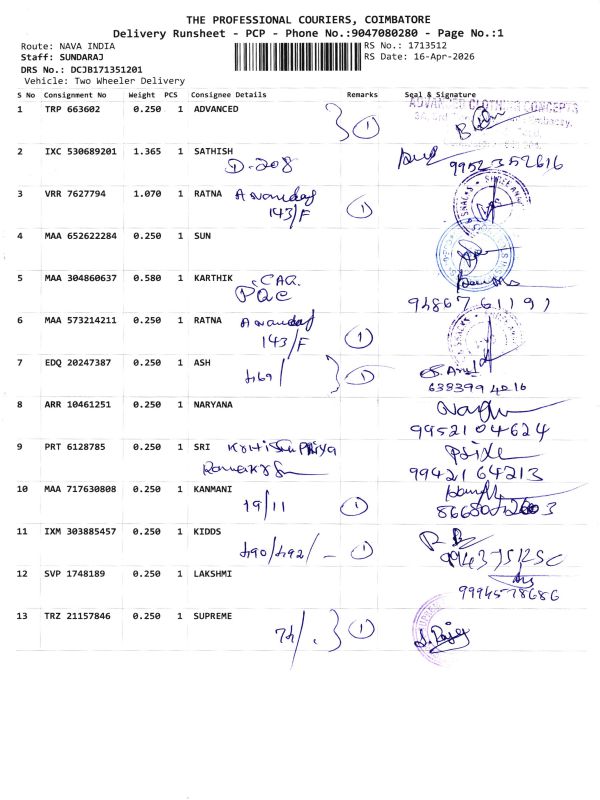 THE PROFESSIONAL COURIERS, COIMBATORE
Delivery Runsheet - PCP - Phone No.:9047080280 - Page No.:1
Route: NAVA INDIA
RS No.: 1713512
Staff: SUNDARAJ
RS Date: 16-Apr-2026
DRS No.: DCJB171351201
Vehicle: Two Wheeler Delivery
S No Consignment No Weight PCS Consignee Details Remarks Seal & Signature
1 TRP 663602 0.250 1 ADVANCED 1
ADVANCED CLOTHING CONCEPTS
2 IXC 530689201 1.365 1 SATHISH
D-208
9952352616
3 VRR 7627794 1.070 1 RATNA
143/F 1
4 MAA 652622284 0.250 1 SUN
5 MAA 304860637 0.580 1 KARTHIK
94867 61191
6 MAA 573214211 0.250 1 RATNA
143/F 1
7 EDQ 20247387 0.250 1 ASH
469/ 1
638399 4216
8 ARR 10461251 0.250 1 NARYANA
9952104624
9 PRT 6128785 0.250 1 SRI
9942164213
10 MAA 717630808 0.250 1 KANMANI
19/11 1
11 IXM 303885457 0.250 1 KIDDS
490/492/ - 1
12 SVP 1748189 0.250 1 LAKSHMI
9994578686
13 TRZ 21157846 0.250 1 SUPREME
74/. 1